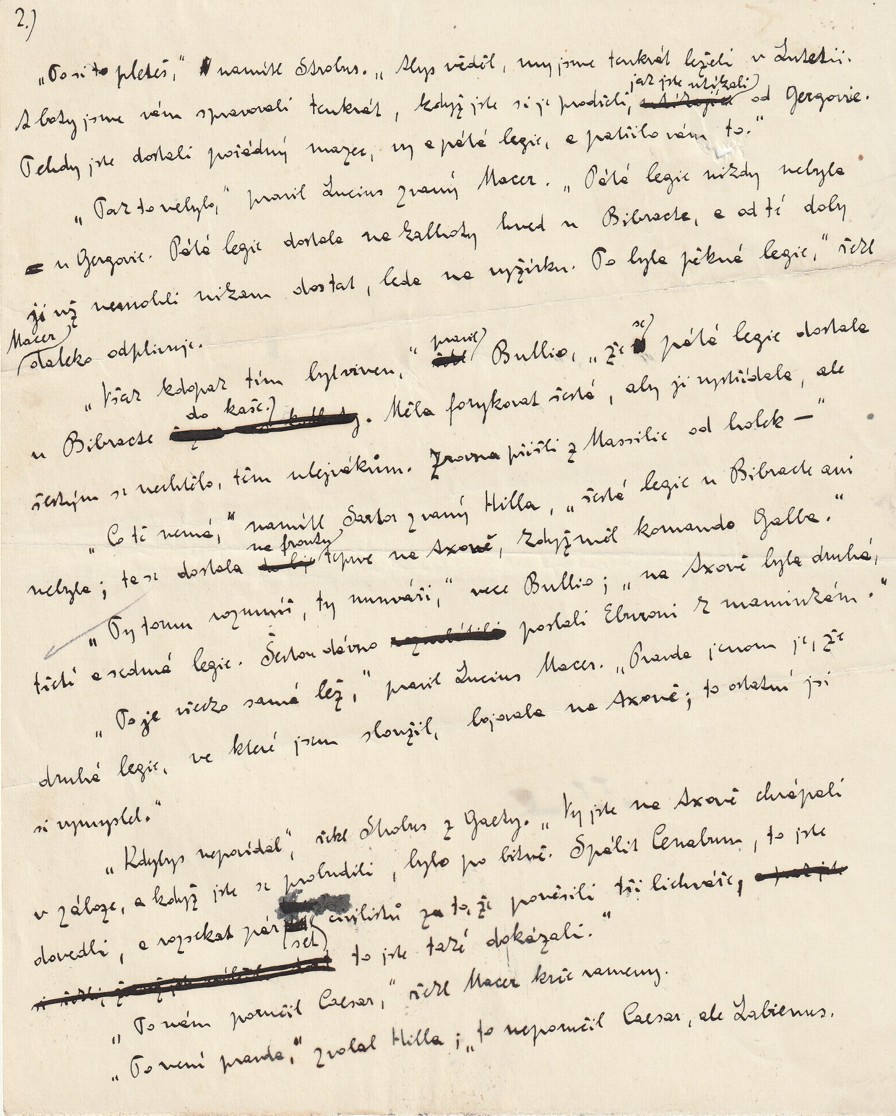 2.)
„To si to pleteš,“ namítl Strobus. „Abys věděl, my jsme tenkrát leželi v Lutetii.
A boty jsme vám spravovali tenkrát, když jste si je prodřeli, jak jste utíkali od Gergovie.
Tehdy jste dostali pořádný mazec, vy a pátá legie, a patřilo vám to.“
„Tak to nebylo,“ pravil Lucius zvaný Macer. „Pátá legie nikdy nebyla
u Gergovie. Pátá legie dostala na kalhoty hned u Bibracte, a od té doby
ji už nemohli nikam dostat, leda na vyžírku. To byla pěkná legie,“ řekl
Macer daleko odplivuje.
„Však kdopak tím byl vinen,“ pravil Bullio, „že se pátá legie dostala
u Bibracte do kaše. Měla forykovat šestá, aby ji vystřídala, ale
šestým se nechtělo, těm ulejvákům. Zrovna přišli z Massilie od holek —“
„Co tě nemá,“ namítl Sartor zvaný Hilla, „šestá legie u Bibracte ani
nebyla; ta se dostala na frontu teprve na Axoně, když měl komando Galba.“
„Ty tomu rozumíš, ty nunváři,“ vece Bullio; „na Axoně byla druhá,
třetí a sedmá legie. Šestou dávno poslali Eburoni k maminkám.“
„To je všecko samá lež,“ pravil Lucius Macer. „Pravda jenom je, že
druhá legie, ve které jsem sloužil, bojovala na Axoně; to ostatní jsi
si vymyslel.“
„Kdybys nepovídal“, řekl Strobus z Gaety. „Vy jste na Axoně chrápali
v záloze, a když jste se probudili, bylo po bitvě. Spálit Cenabum, to jste
dovedli, a rozsekat pár set civilistů za to, že pověsili tři lichváře,
to jste také dokázali.“
„To nám poručil Caesar,“ řekl Macer krče rameny.
„To není pravda,“ zvolal Hilla; „to neporučil Caesar, ale Labienus.